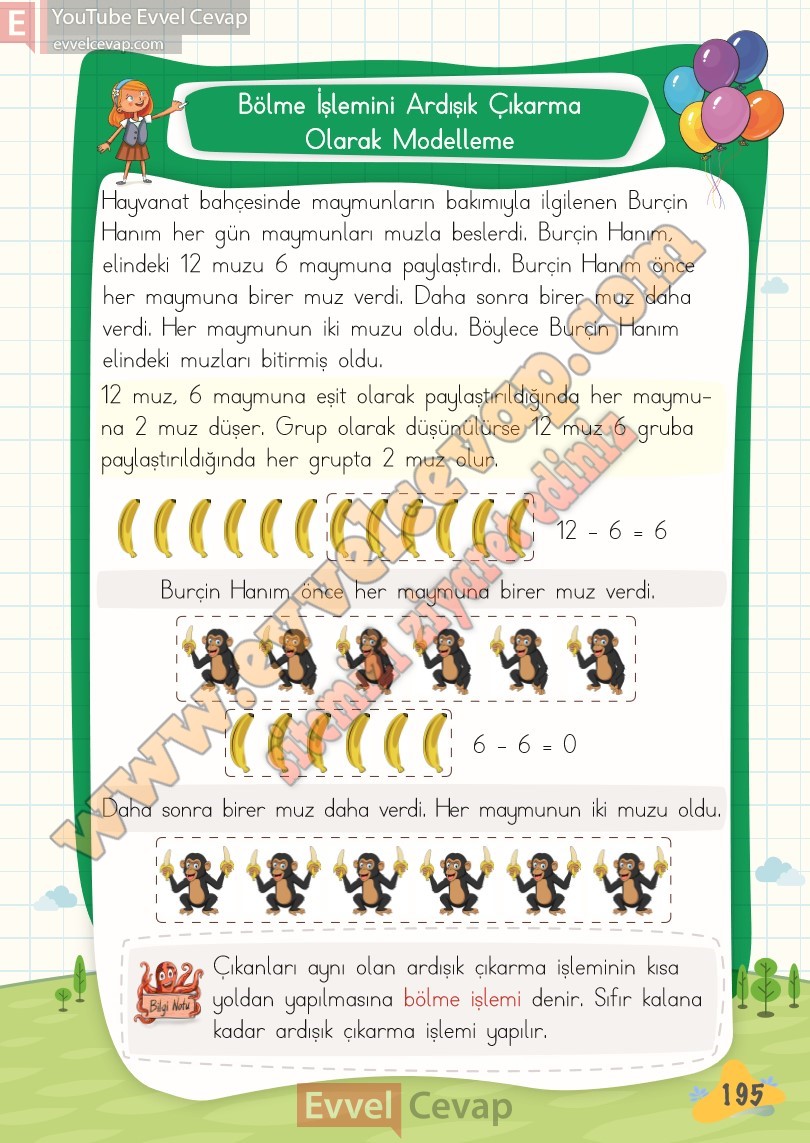 E YouTube Evvel Cevap
evvelcevap.com
Bölme İşlemini Ardışık Çıkarma
Olarak Modelleme
Hayvanat bahçesinde maymunların bakımıyla ilgilenen Burçin
Hanım her gün maymunları muzla beslerdi. Burçin Hanım,
elindeki 12 muzu 6 maymuna paylaştırdı. Burçin Hanım önce
her maymuna birer muz verdi. Daha sonra birer muz daha
verdi. Her maymunun iki muzu oldu. Böylece Burçin Hanım
elindeki muzları bitirmiş oldu.
12 muz, 6 maymuna eşit olarak paylaştırıldığında her maymu-
na 2 muz düşer. Grup olarak düşünülürse 12 muz 6 gruba
paylaştırıldığında her grupta 2 muz olur.
12 - 6 = 6
Burçin Hanım önce her maymuna birer muz verdi.
6 - 6 = 0
Daha sonra birer muz daha verdi. Her maymunun iki muzu oldu.
www.evvelcevap.com
sitemizi ziyaret ediniz
Bilgi Notu
Çıkanları aynı olan ardışık çıkarma işleminin kısa
yoldan yapılmasına bölme işlemi denir. Sıfır kalana
kadar ardışık çıkarma işlemi yapılır.
195
Evvel Cevap